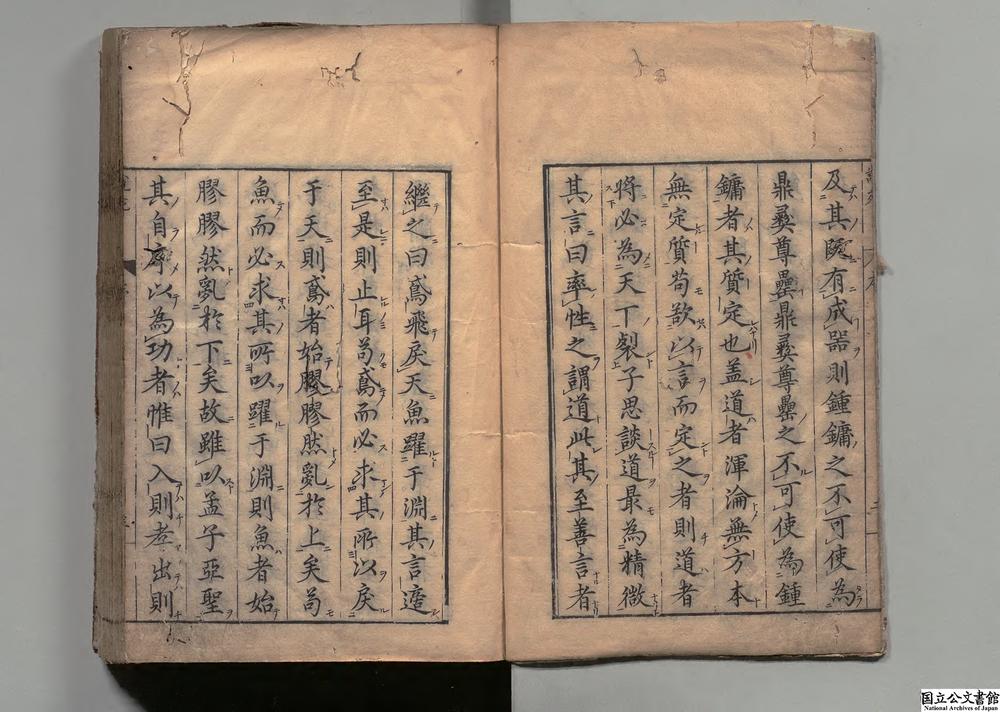 及其既有成器則鍾鏞之不可使為
鼎彝尊罍鼎彝尊罍之不可使為鍾
鏞者其質定也盖道者渾淪無方本
無定質苟欲以言而定之者則道者
將必為天下裂子思談道最為精微
其言曰率性之謂道此其至善言者
繼之曰鳶飛戾天魚躍于淵其言遠
至是則止耳苟鳶而必求其所以戾
于天則鳶者始膠膠然亂於上矣苟
魚而必求其所以躍于淵則魚者始
膠膠然亂於下矣故雖以孟子亞聖
其自序以為功者惟曰入則孝出則
国立公文書館
National Archives of Japan